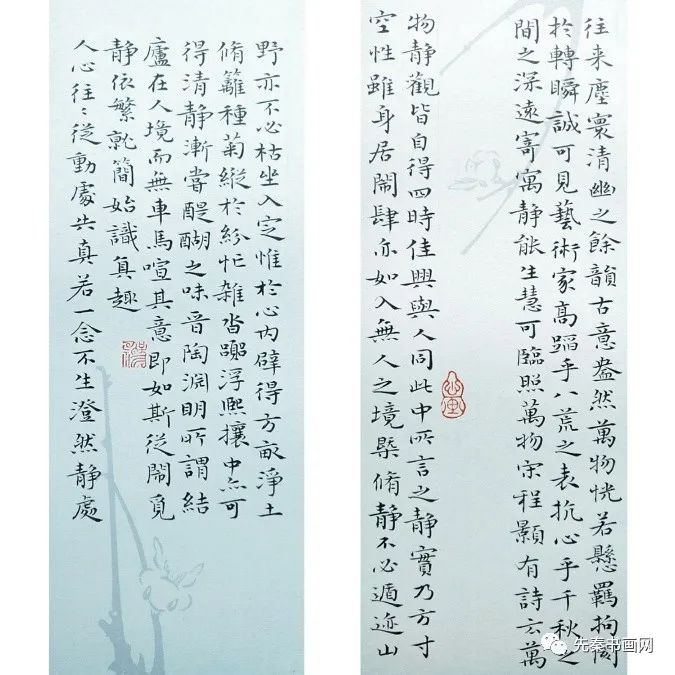 往来塵寰清幽之餘韻古意盎然萬物恍若懸羈拘閡
於轉瞬誠可見藝術家高蹈乎八荒之表抗心乎千秋之
間之深遠寄寓静能生慧可臨照萬物宋程顥有詩云萬
物静觀皆自得四時佳興與人同此中所言之静實乃方寸
空性雖身居鬧肆亦如入無人之境槩脩静不必遁迹山
野亦不必枯坐入定惟於心内辟得方畝淨土
脩籬種菊縱於紛忙雑沓躁浮熙攘中亦可
得清静漸嘗醍醐之味晋陶淵明所謂結
廬在人境而無車馬喧其意即如斯從鬧覓
静依繁就簡始識真趣
人心往〻從動處失真若一念不生澄然静處
先秦书画网